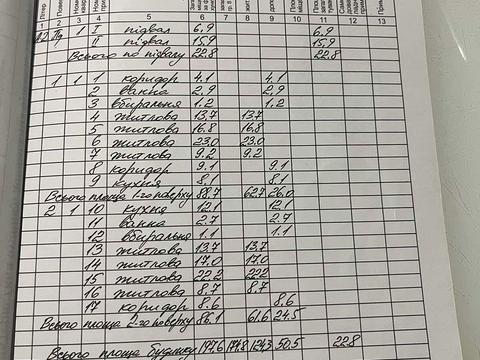 1 2 3 4 5 6 7 8 9 10 11 12 13
A2 Пд 1 I підвал 6,9 6,9
II підвал 15,9 15,9
Всього по підвалу 22,8 22,8
1 1 1 коридор 4.1 4.1
2 ванна 2,9 2,9
3 вбиральня 1.2 1.2
4 житлова 13,7 13,7
5 житлова 16,8 16,8
6 житлова 23,0 23,0
7 житлова 9.2 9.2
8 коридор 9.1 9.1
9 кухня 8,1 8,1
Всього площа 1-го поверху 88.7 62.7 26.0
2 1 10 кухня 12,1 12,1
11 ванна 2.7 2.7
12 вбиральня 1.1 1.1
13 житлова 13,7 13,7
14 житлова 17.0 17.0
15 житлова 22,2 22,2
16 житлова 8.7 8.7
17 коридор 8.6 8.6
Всього площа 2-го поверху 86.1 61.6 24.5
Всього площа будинку 197.6 174.8 124,3 50,5 22.8